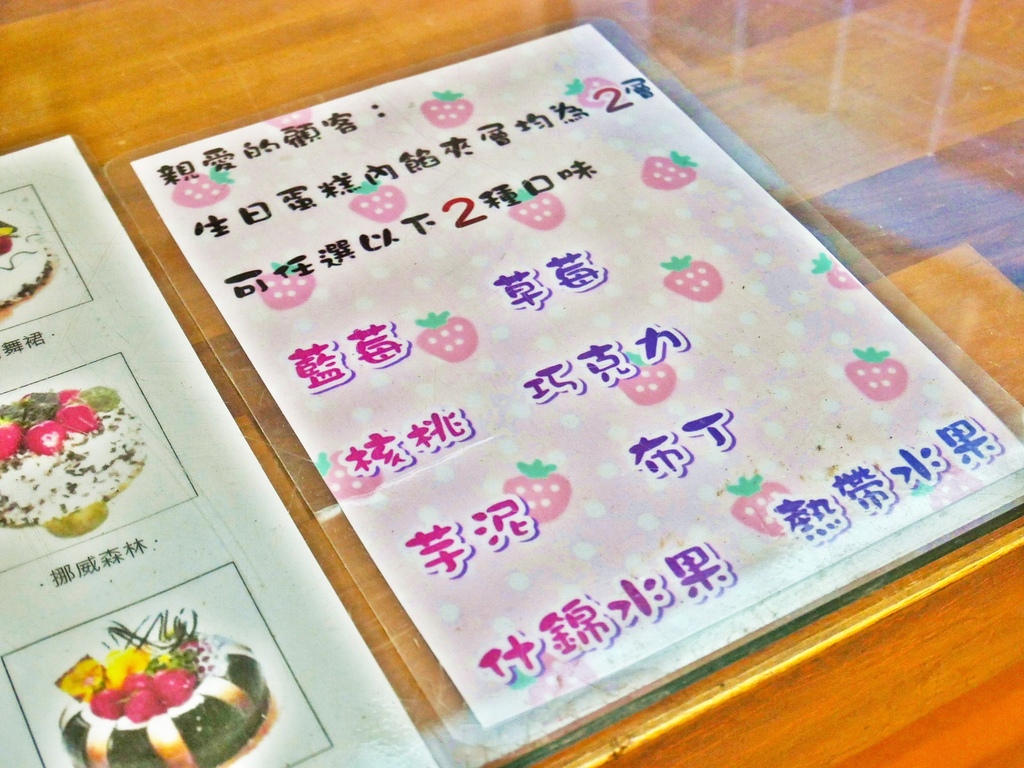 親愛的顧客：
生日蛋糕內餡夾層均為2層
可任選以下2種口味
藍莓 草莓
核桃 巧克力
芋泥 布丁
什錦水果 熱帶水果
舞裙·
·挪威森林·